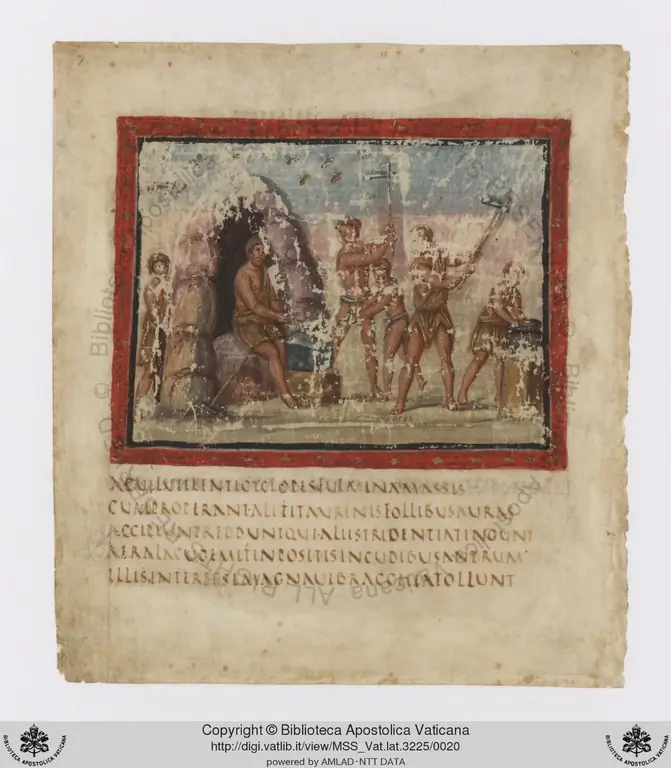 ACUELUTILENTISCYCLOPESFULMINAMASSIS
CUMPROPERANTALIITAURINISFOLLIBUSAURAS
ACCIPIUNTREDDUNTQUIALIISTRIDENTIATINGUNT
AERALACUGEMITINPOSITISINCUDIBUSANTRUM
ILLIINTERSESEMAGNAUIBRACCHIATOLLUNT
Copyright © Biblioteca Apostolica Vaticana
http://digi.vatlib.it/view/MSS_Vat.lat.3225/0020
powered by AMLAD·NTT DATA
BIBLIOTECA APOSTOLICA VATICANA
BIBLIOTECA APOSTOLICA VATICANA